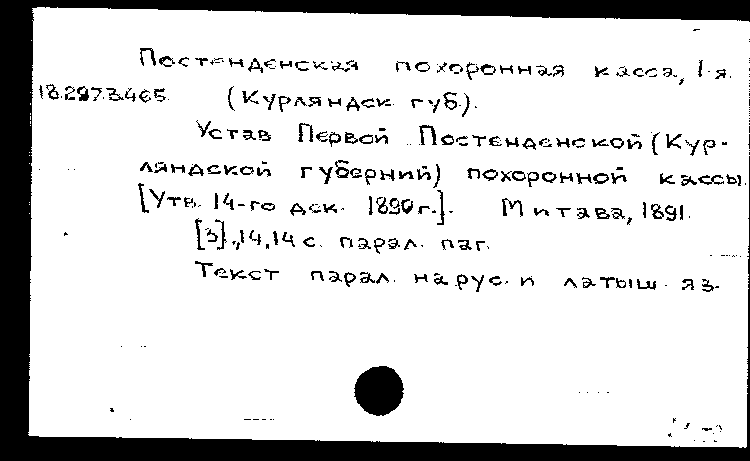 Постенденская похоронная касса, 1-я.
18.297.3.465. (Курляндск. губ.).
Устав Первой Постенденской (Кур-
ляндской губерний) похоронной кассы.
[Утв. 14-го дек. 1890 г.]. Митава, 1891.
[3], 14, 14 с. парал. паг.
Текст парал. на рус. и латыш. яз.